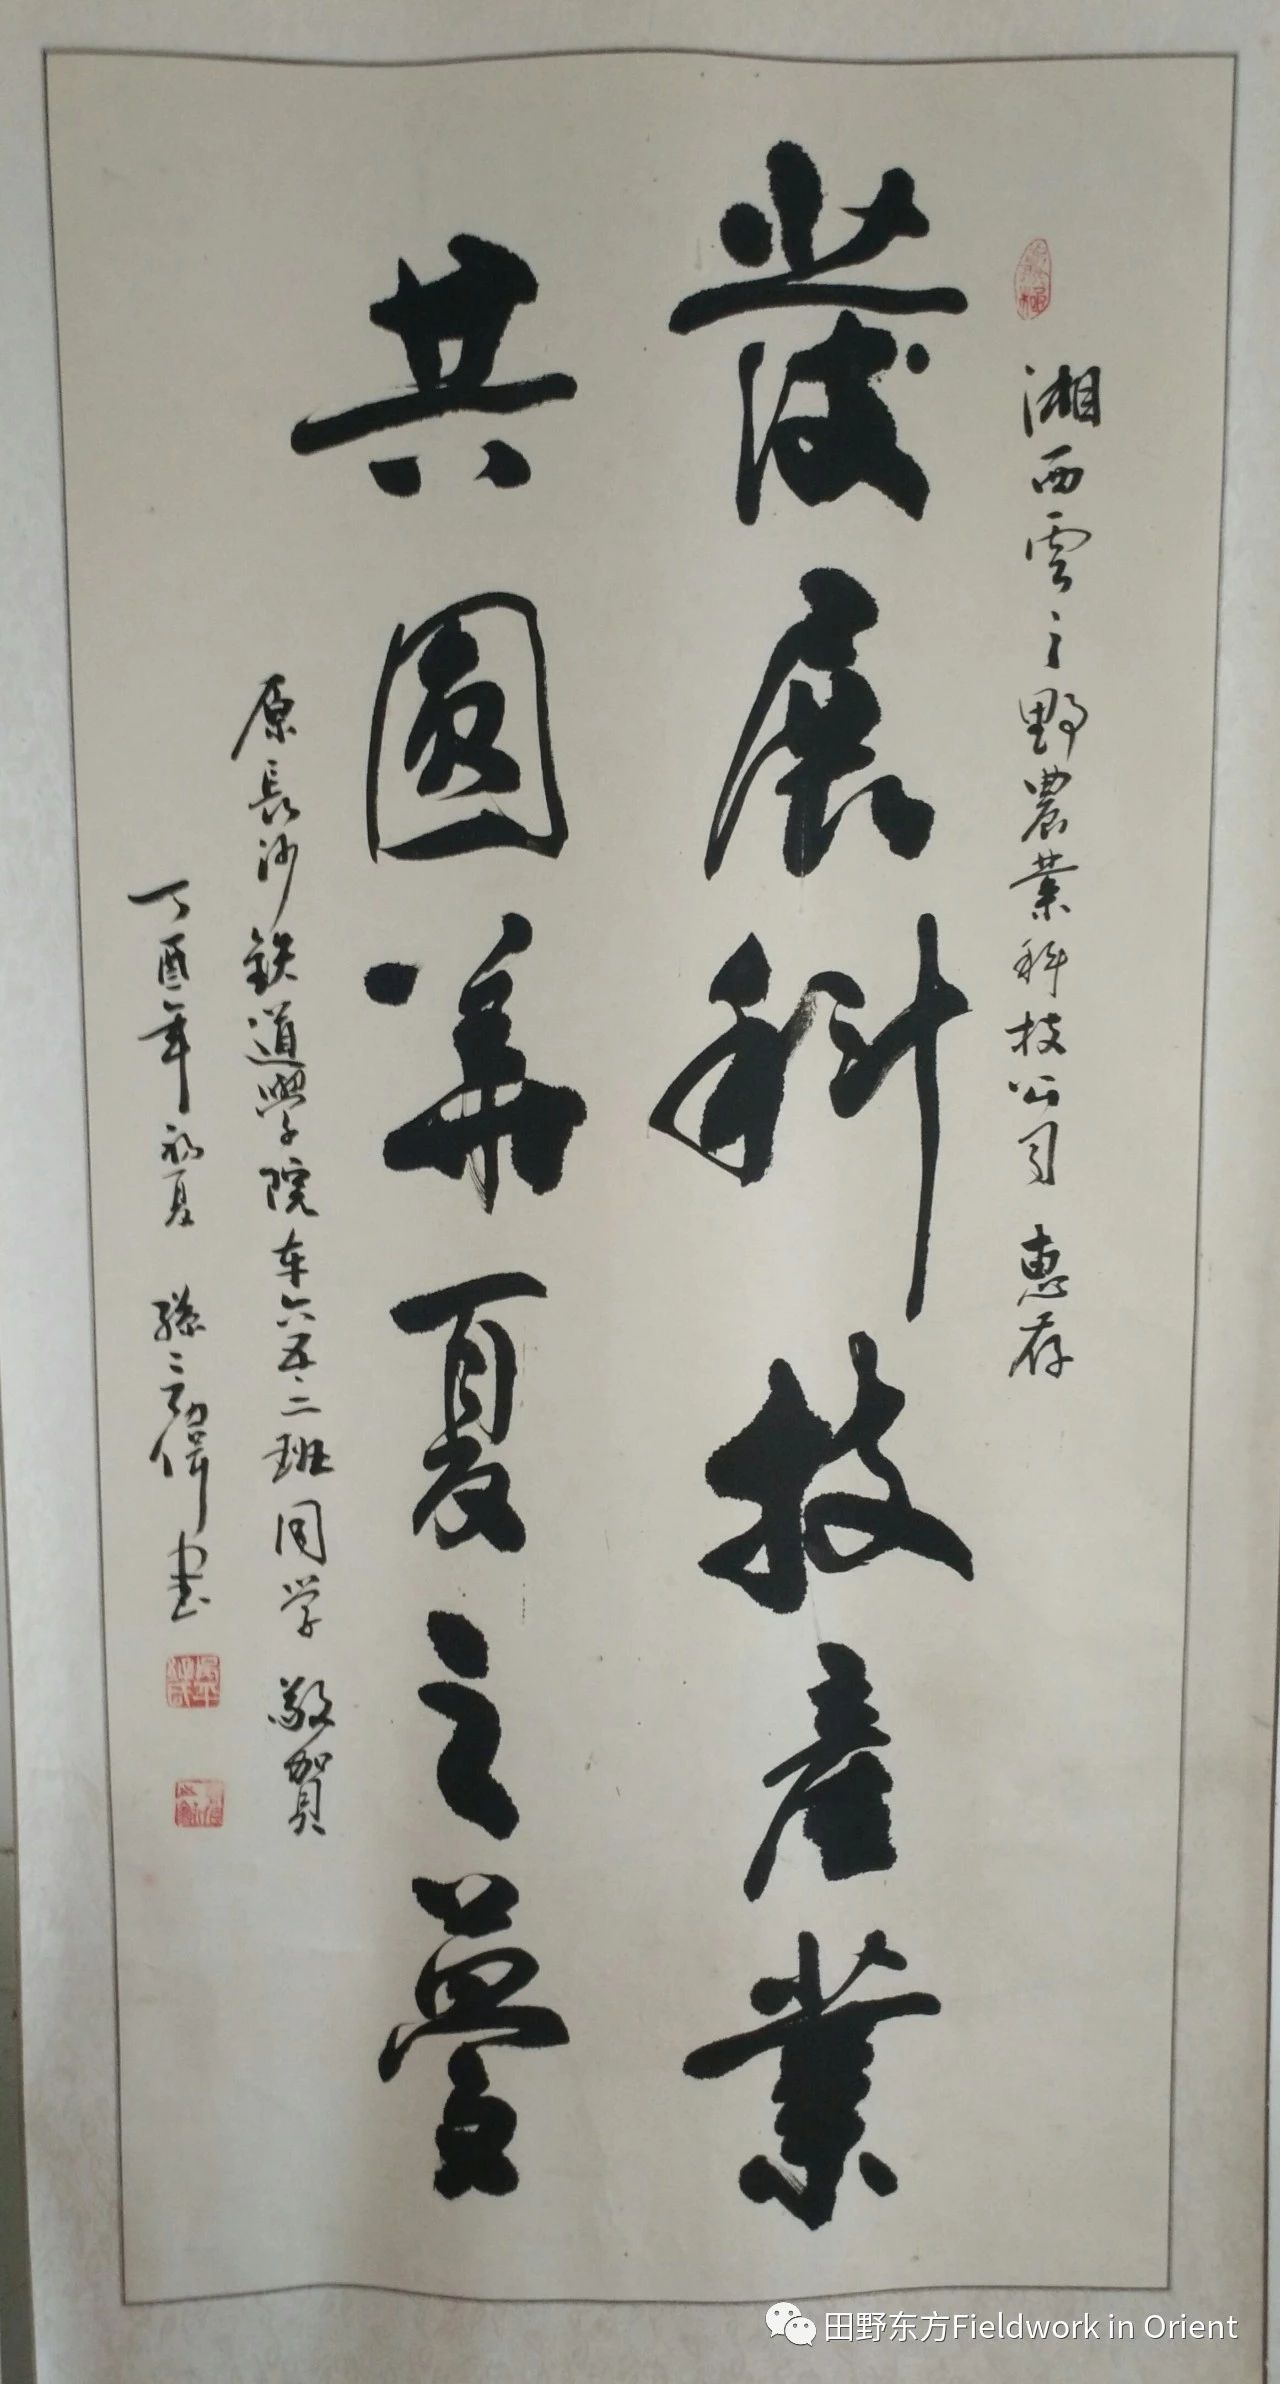 湘西雲之野農業科技公司 惠存
發展科技產業
共圓華夏之夢
原長沙鉄道學院车六五二班同学 敬賀
丁酉年初夏 孫之勁偉书
田野东方Fieldwork in Orient